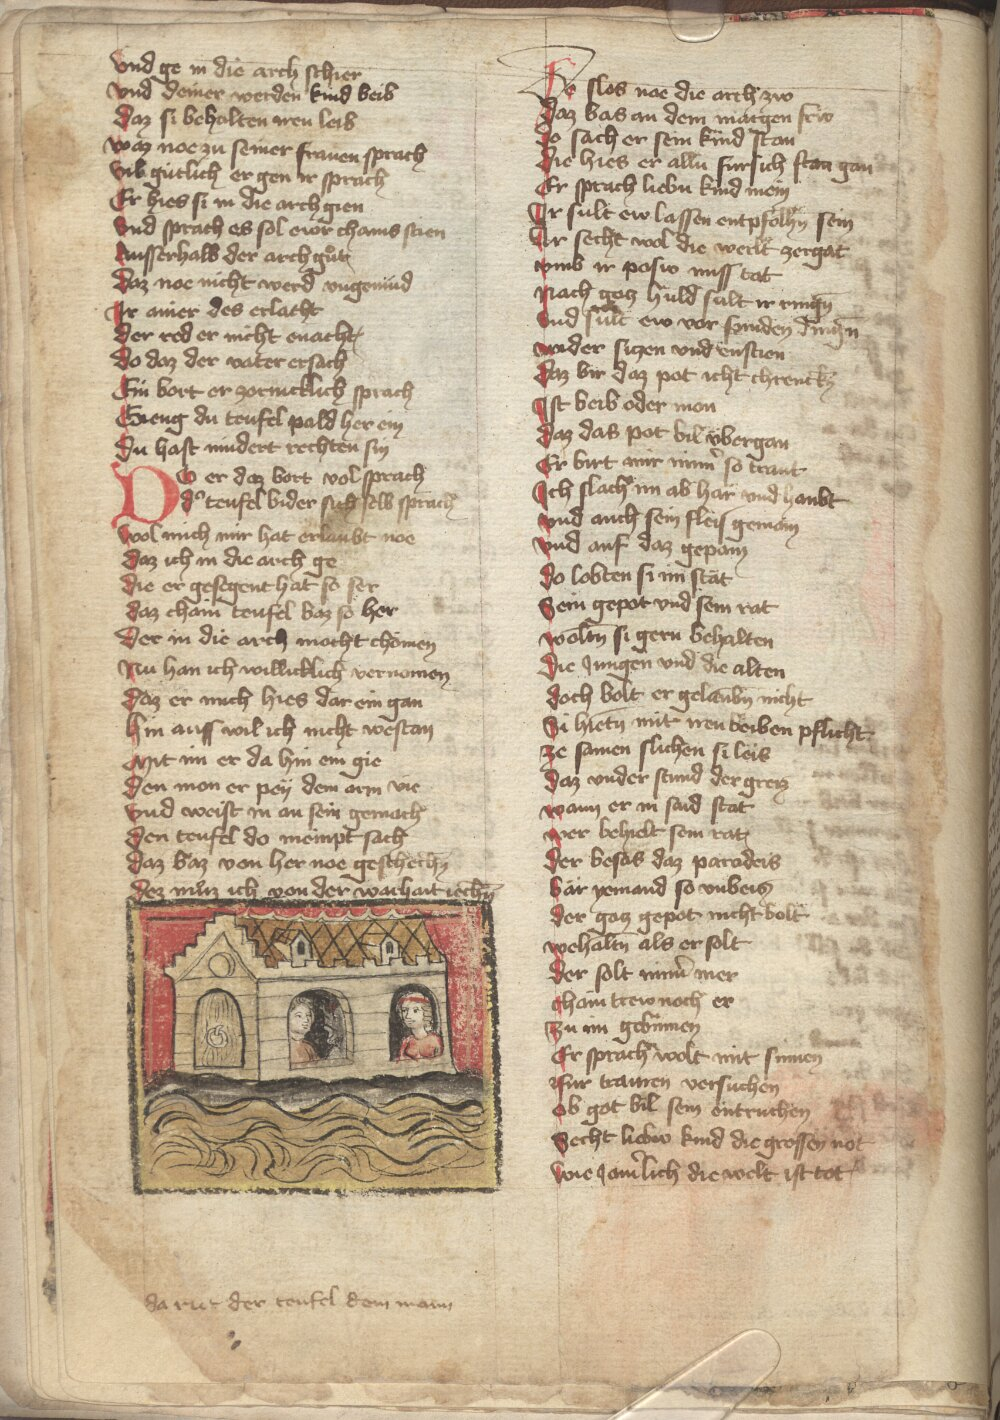 Vnd ge in die arch schier
Vnd deiner werden kind beib
Daz si behalten iren leib
Waz noe zu seiner frauen sprach
Vil gutlich er gen ir sprach
Er hies si in die arch gien
Vnd sprach es sol ewr chains stien
Ausserhalb der arch
Daz noe nicht werd vngemud
Ir ainer des erlacht
der red er nicht enacht
do daz der vater ersach
Ein bort er zornicklich sprach
Gieng du teufel pald her ein
Du hast nindert rechten sin
Do er daz bort vol sprach
d' teufel bider sich selb sprach
wol mich mir hat erlaubt noe
daz ich in die arch ge
die er gesegent hat so ser
daz chain teufel baz so her
Der in die arch mocht chomen
Nu han ich willicklich vernomen
Daz er mich hies dar ein gan
hin auss wil ich nicht westan
Mit im er da hin ein gie
Den mon er pey dem arm vie
Vnd weist in an sein gemach
den teufel do niempt sach
daz baz von her noe geschechn
dez muz ich von der warhait iechn
Do slos noe die arch zw
daz bas an dem margen frw
Do sach er sein kind stan
Die hies er allu fur sich stan gan
Er sprach liebu kind mein
Ir sult ew lassen entpfolhn sein
Ir secht wol die werlt zergat
vmb ir posw miss tat
Nach gotz huld sult ir ringn
Vnd sult ew vor sunden dingn
wider sitzen vnd enstien
Daz bir daz pot icht chrencken
Ist beib oder mon
Daz das pot bil vbergan
Er birt mir nim' so traut
Ich slach im ab har vnd haubt
vnd auch sein fleis gemain
vnd auf daz gepain
do lobten si im stat
Sein gepot vnd sein rat
woltn si gern behalten
die Jungen vnd die alten
doch bolt er gelaubn nicht
Si hietn mit iren beiben pflicht
ze samen slichen si leis
daz vnder stund der greis
wann er in said stat
wer behielt sein rat
der besas daz paradeis
bar yemand so vnbeis
der gotz gepot nicht bolt
behaltn als er solt
der solt nim' mer
chain trew noch er
zu im gebinnen
Er sprach wolt mit sinnen
fur trauren versuchen
ob got bil sein entruchen
Secht liebw kind die grossen not
wie Jam'lich die welt ist tot
da rut der teufel dem mann